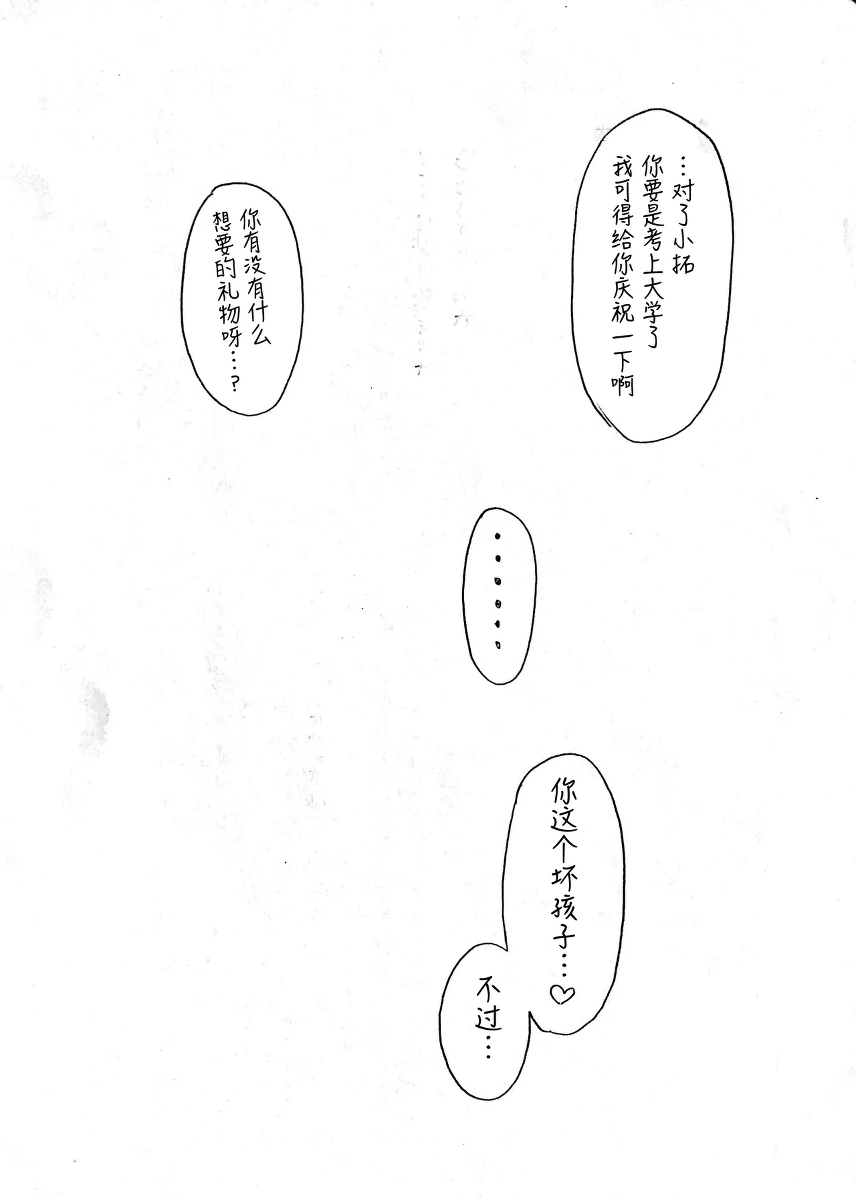 …对了小拓
你要是考上大学了
我可得给你庆祝一下啊
你有没有什么
想要的礼物呀…?
······
你这个坏孩子…♡
不过…